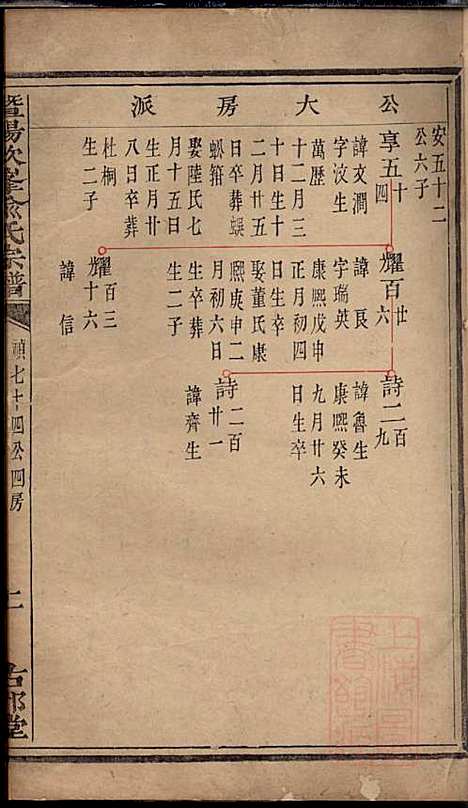 公大房派
安五十二
公六子
享五十四
諱文澗
字汶生
萬歷
十二月三
十日生十
二月廿五
日卒葬蜈
蚣箝
娶陸氏七
月十五日
生正月廿
八日卒葬
杜桐
生二子
耀百廿六
諱良
字瑞英
康熙戊申
正月初四
日生卒
娶董氏康
熙庚申二
月初六日
生卒葬
生二子
耀百三十六
諱信
詩二百九
諱魯生
康熙癸未
九月廿六
日生卒
詩二百廿一
諱齊生
暨陽次峯俞氏宗譜
禎七十四公四房
二
堂